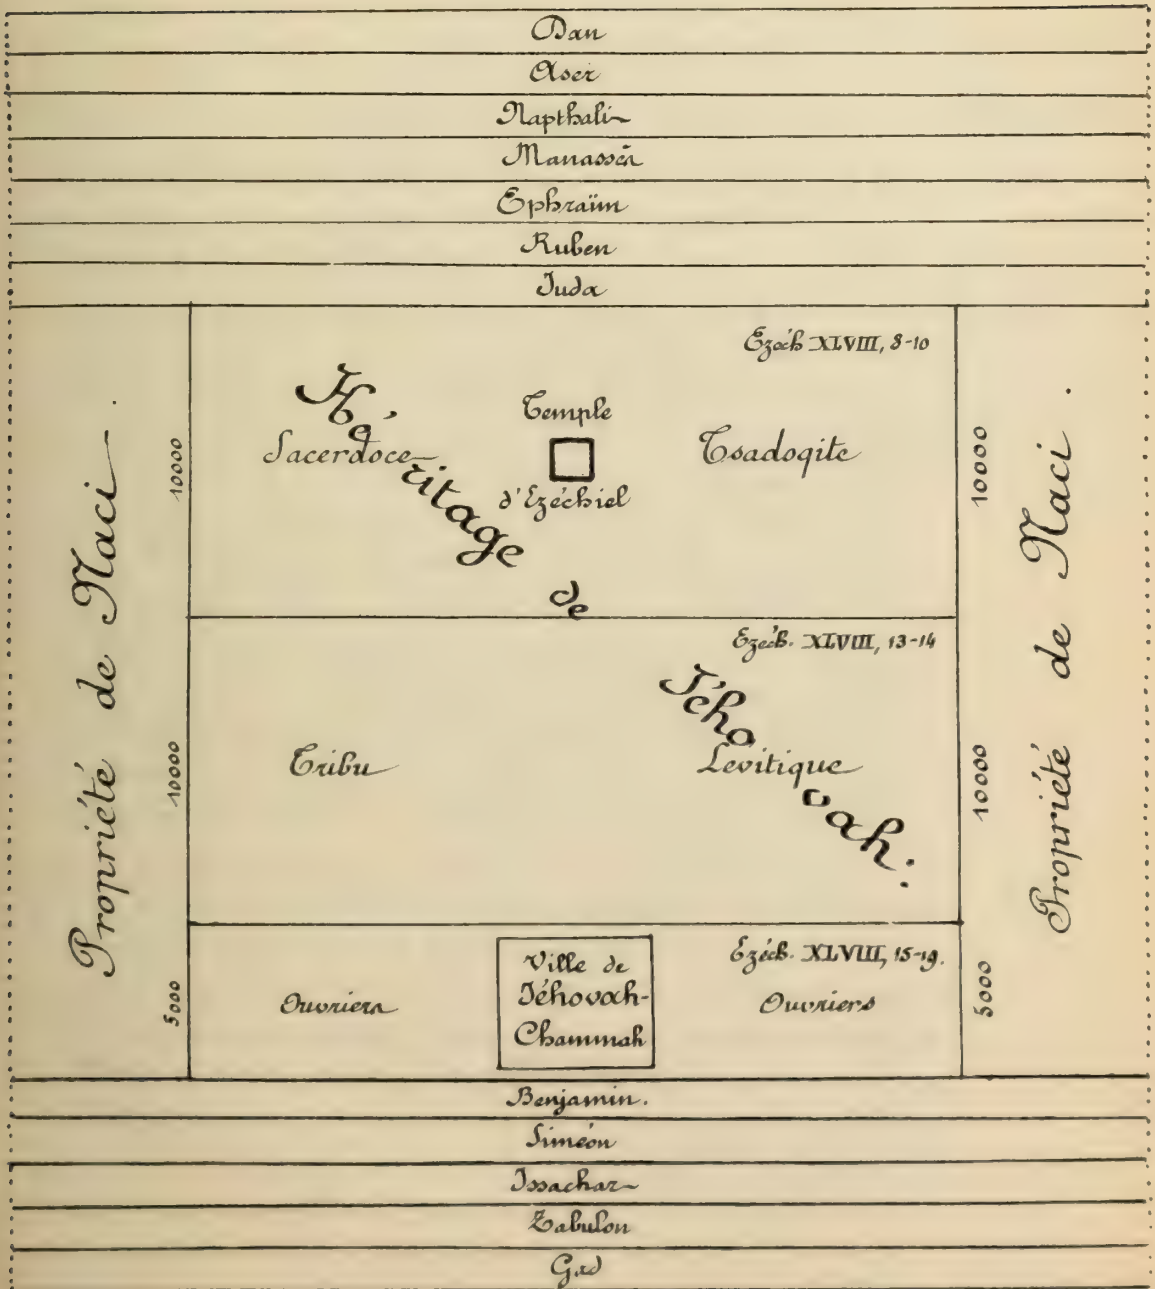 Dan
Aser
Napthali
Manassé
Ephraïm
Ruben
Juda
Propriété de Naci.
10000
10000
5000
Ezéch XLVIII, 8-10
Héritage de Jéhovah.
Temple
d'Ezéchiel
Sacerdoce
Tsadoqite
Ezéch. XLVIII, 13-14
Tribu
Levitique
Ezéch. XLVIII, 15-19.
Ouvriers
Ville de
Jéhovah-
Chammah
Ouvriers
10000
10000
5000
Propriété de Naci.
Benjamin.
Siméon
Issachar
Zabulon
Gad